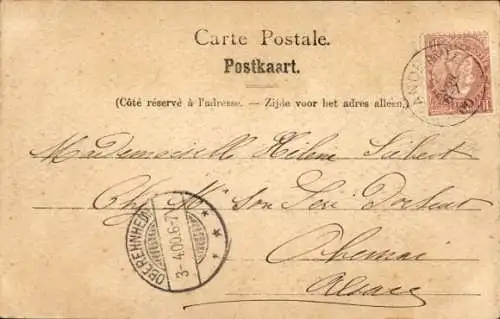 Carte Postale.
Postkaart.
(Côté réservé à l'adresse. — Zijde voor het adres alleen.)
ANDE
Mademoiselle Hélène
Chez Mr son Père
OBEREHNHEIM
3-4.00.6-7
Obernai
Alsace